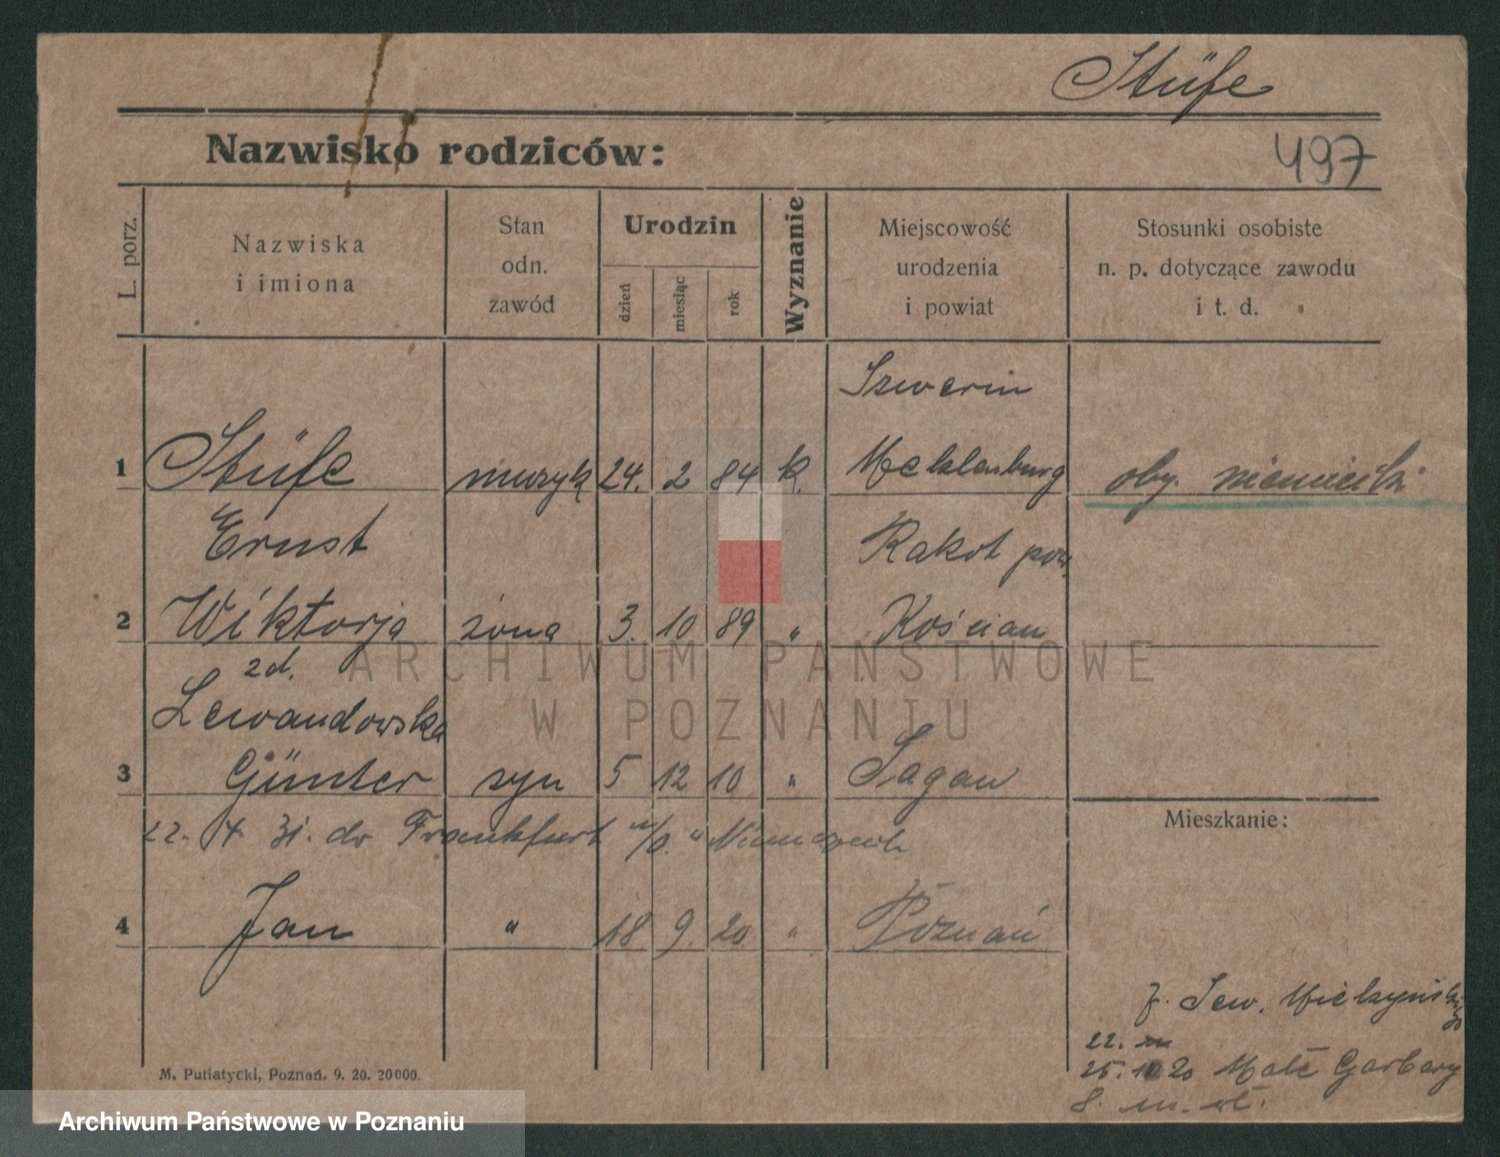 Stüfe
Nazwisko rodziców:
497
L. porz.
Nazwiska
i imiona
Stan
odn.
zawód
Urodzin
dzień
miesiąc
rok
Wyznanie
Miejscowość
urodzenia
i powiat
Stosunki osobiste
n. p. dotyczące zawodu
i t. d.
Szwerin
1 Stüfe muzyk 24. 2 84 k. Mecklenburg oby. niemiecki
Ernst Rakot pow.
2 Wiktorja żona 3. 10 89 " Kościan
zd.
Lewandowska
3 Günter syn 5 12 10 " Sagan
22. 4. 31. do Frankfurt n/O. "
Mieszkanie:
4 Jan " 18 9. 20 " Poznań
Sew. Mielzyńskiego
22.
25. 20 Małe Garbary
8.
M. Putiatycki, Poznań. 9. 20. 20000.
ARCHIWUM PAŃSTWOWE
W POZNANIU
Archiwum Państwowe w Poznaniu